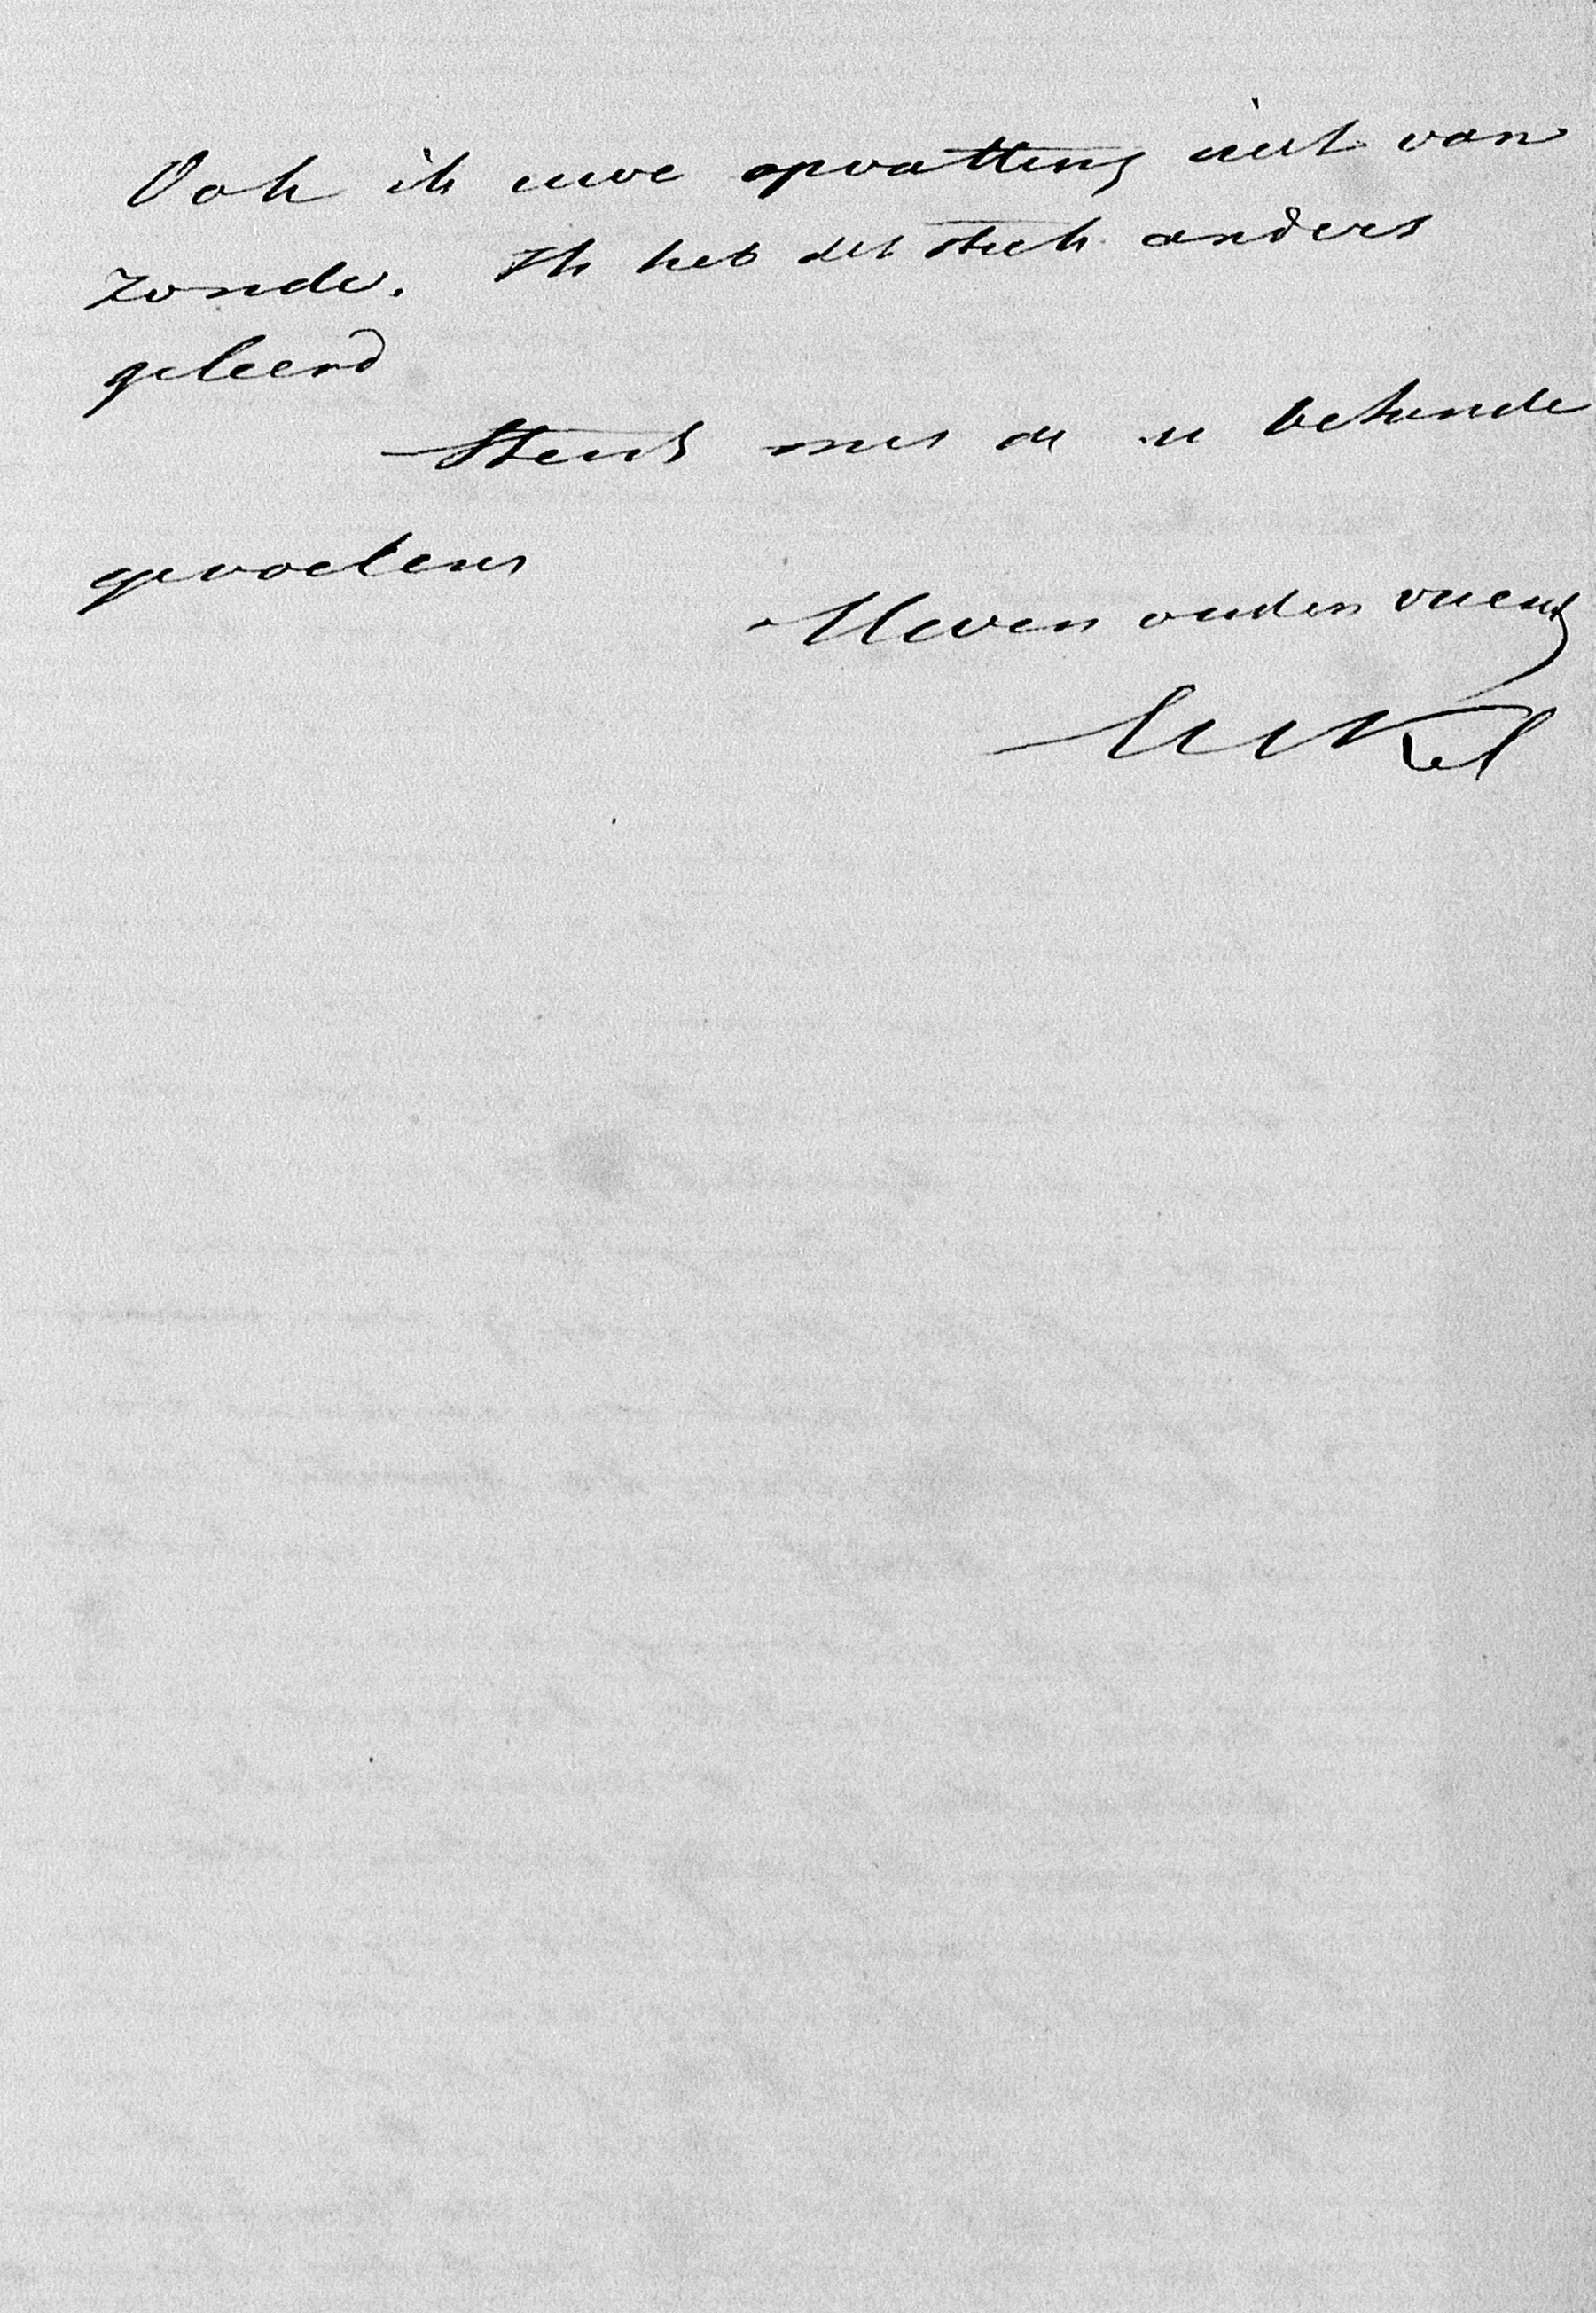 Ook ik uwe opvatting niet van
zonde. Ik heb dit stuk anders
geleerd
Steeds met de u bekende
gevoelens
Uwen ouden vriend